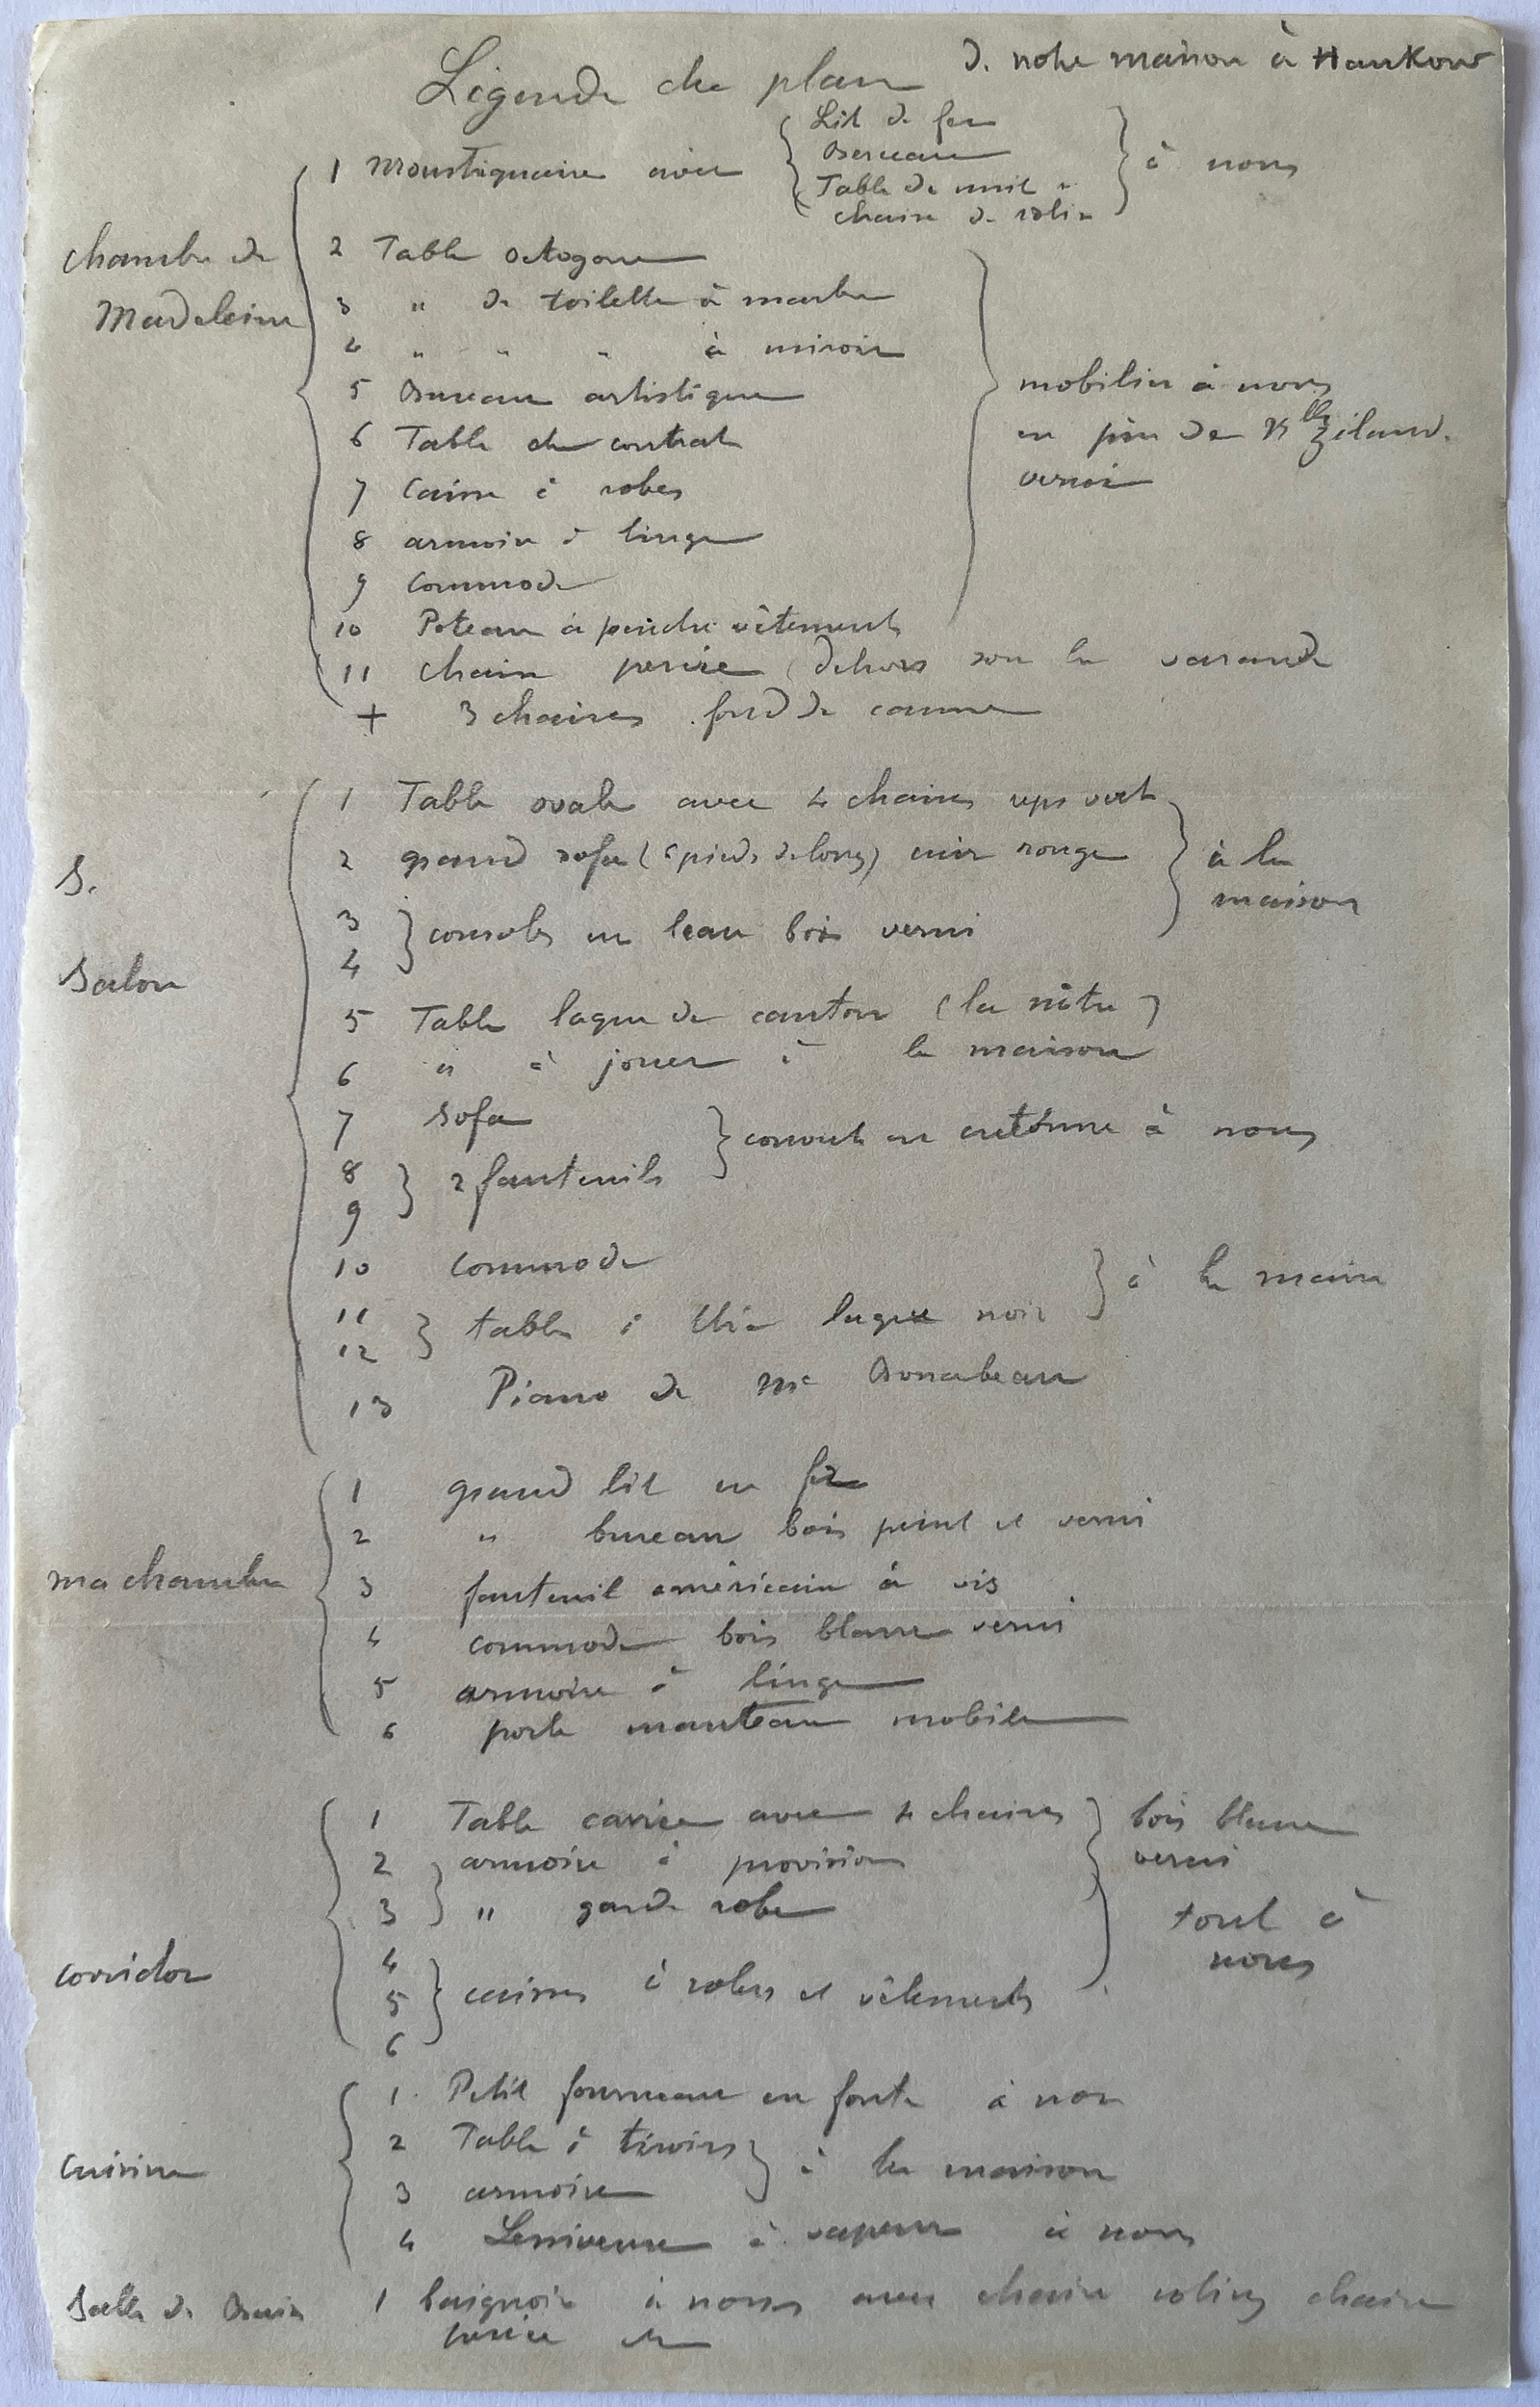 Légende du plan d. notre maison à Hankow
chambre de Madeleine
1 Moustiquaire avec
Lit de fer
Berceau
Table de nuit
chaise de rotin
à nous
2 Table octogone
3 " de toilette à marbre
4 " " " à miroir
5 Bureau artistique
6 Table du contrat
7 Caisse à robes
8 armoire à linge
9 Commode
10 Poteau à pendre vêtements
mobilier à nous
en pin de Nlle Zéland.
verni
11 chaise percée (dehors sou la varande
+ 3 chaises fond de canne
S.
Salon
1 Table ovale avec 4 chaises reps vert
2 grand sofa ( pieds de long) cuir rouge
3
4 consoles en beau bois verni
à la
maison
5 Table laque de canton (la nôtre)
6 " à jouer à la maison
7 Sofa
8
9 2 fauteuils
couvert en cretonne à nous
10 Commode
11
12 tables à thé laque noir
à la maison
13 Piano de Mr Bonabeau
ma chambre
1 grand lit en fer
2 " bureau bois peint et verni
3 fauteuil américain à vis
4 commode bois blanc verni
5 armoire à linge
6 porte manteau mobile
corridor
1 Table carrée avec 4 chaises
2 armoire à provision
3 " garde robe
4
5
6 caisses à robes et vêtements
bois blanc
verni
tout à
nous
Cuisine
1 Petit fourneau en fonte à nous
2 Table à tiroirs
3 armoire
à la maison
4 Lessiveuse à vapeur à nous
Salle de Bain
1 baignoire à nous avec chaise rotin chaise
percée